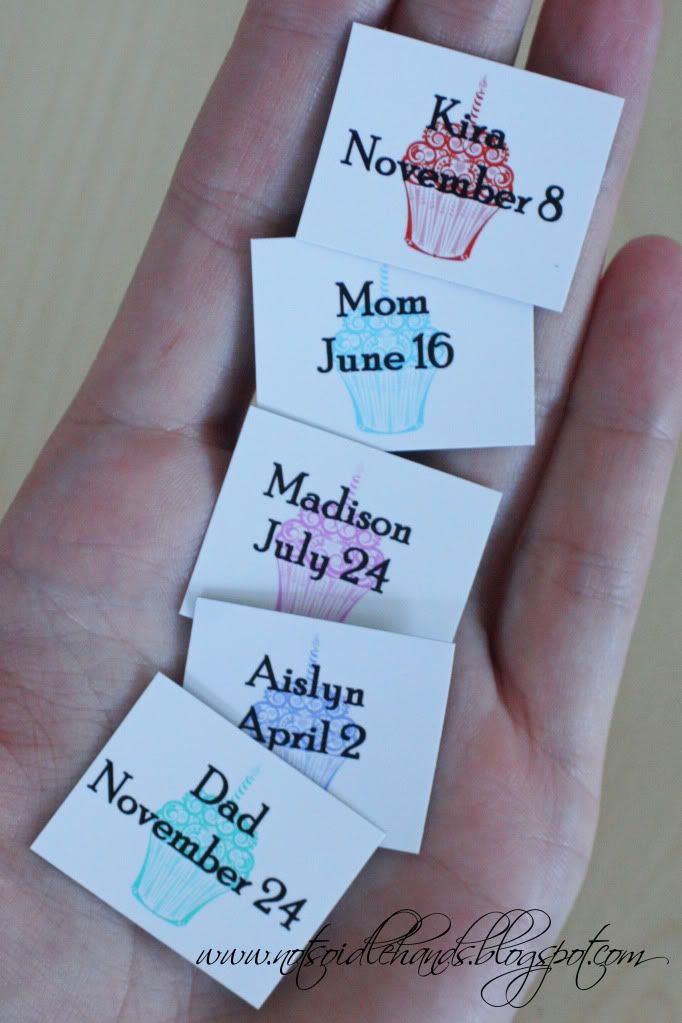 Kira
November 8
Mom
June 16
Madison
July 24
Aislyn
April 2
Dad
November 24
www.notsoidlehands.blogspot.com